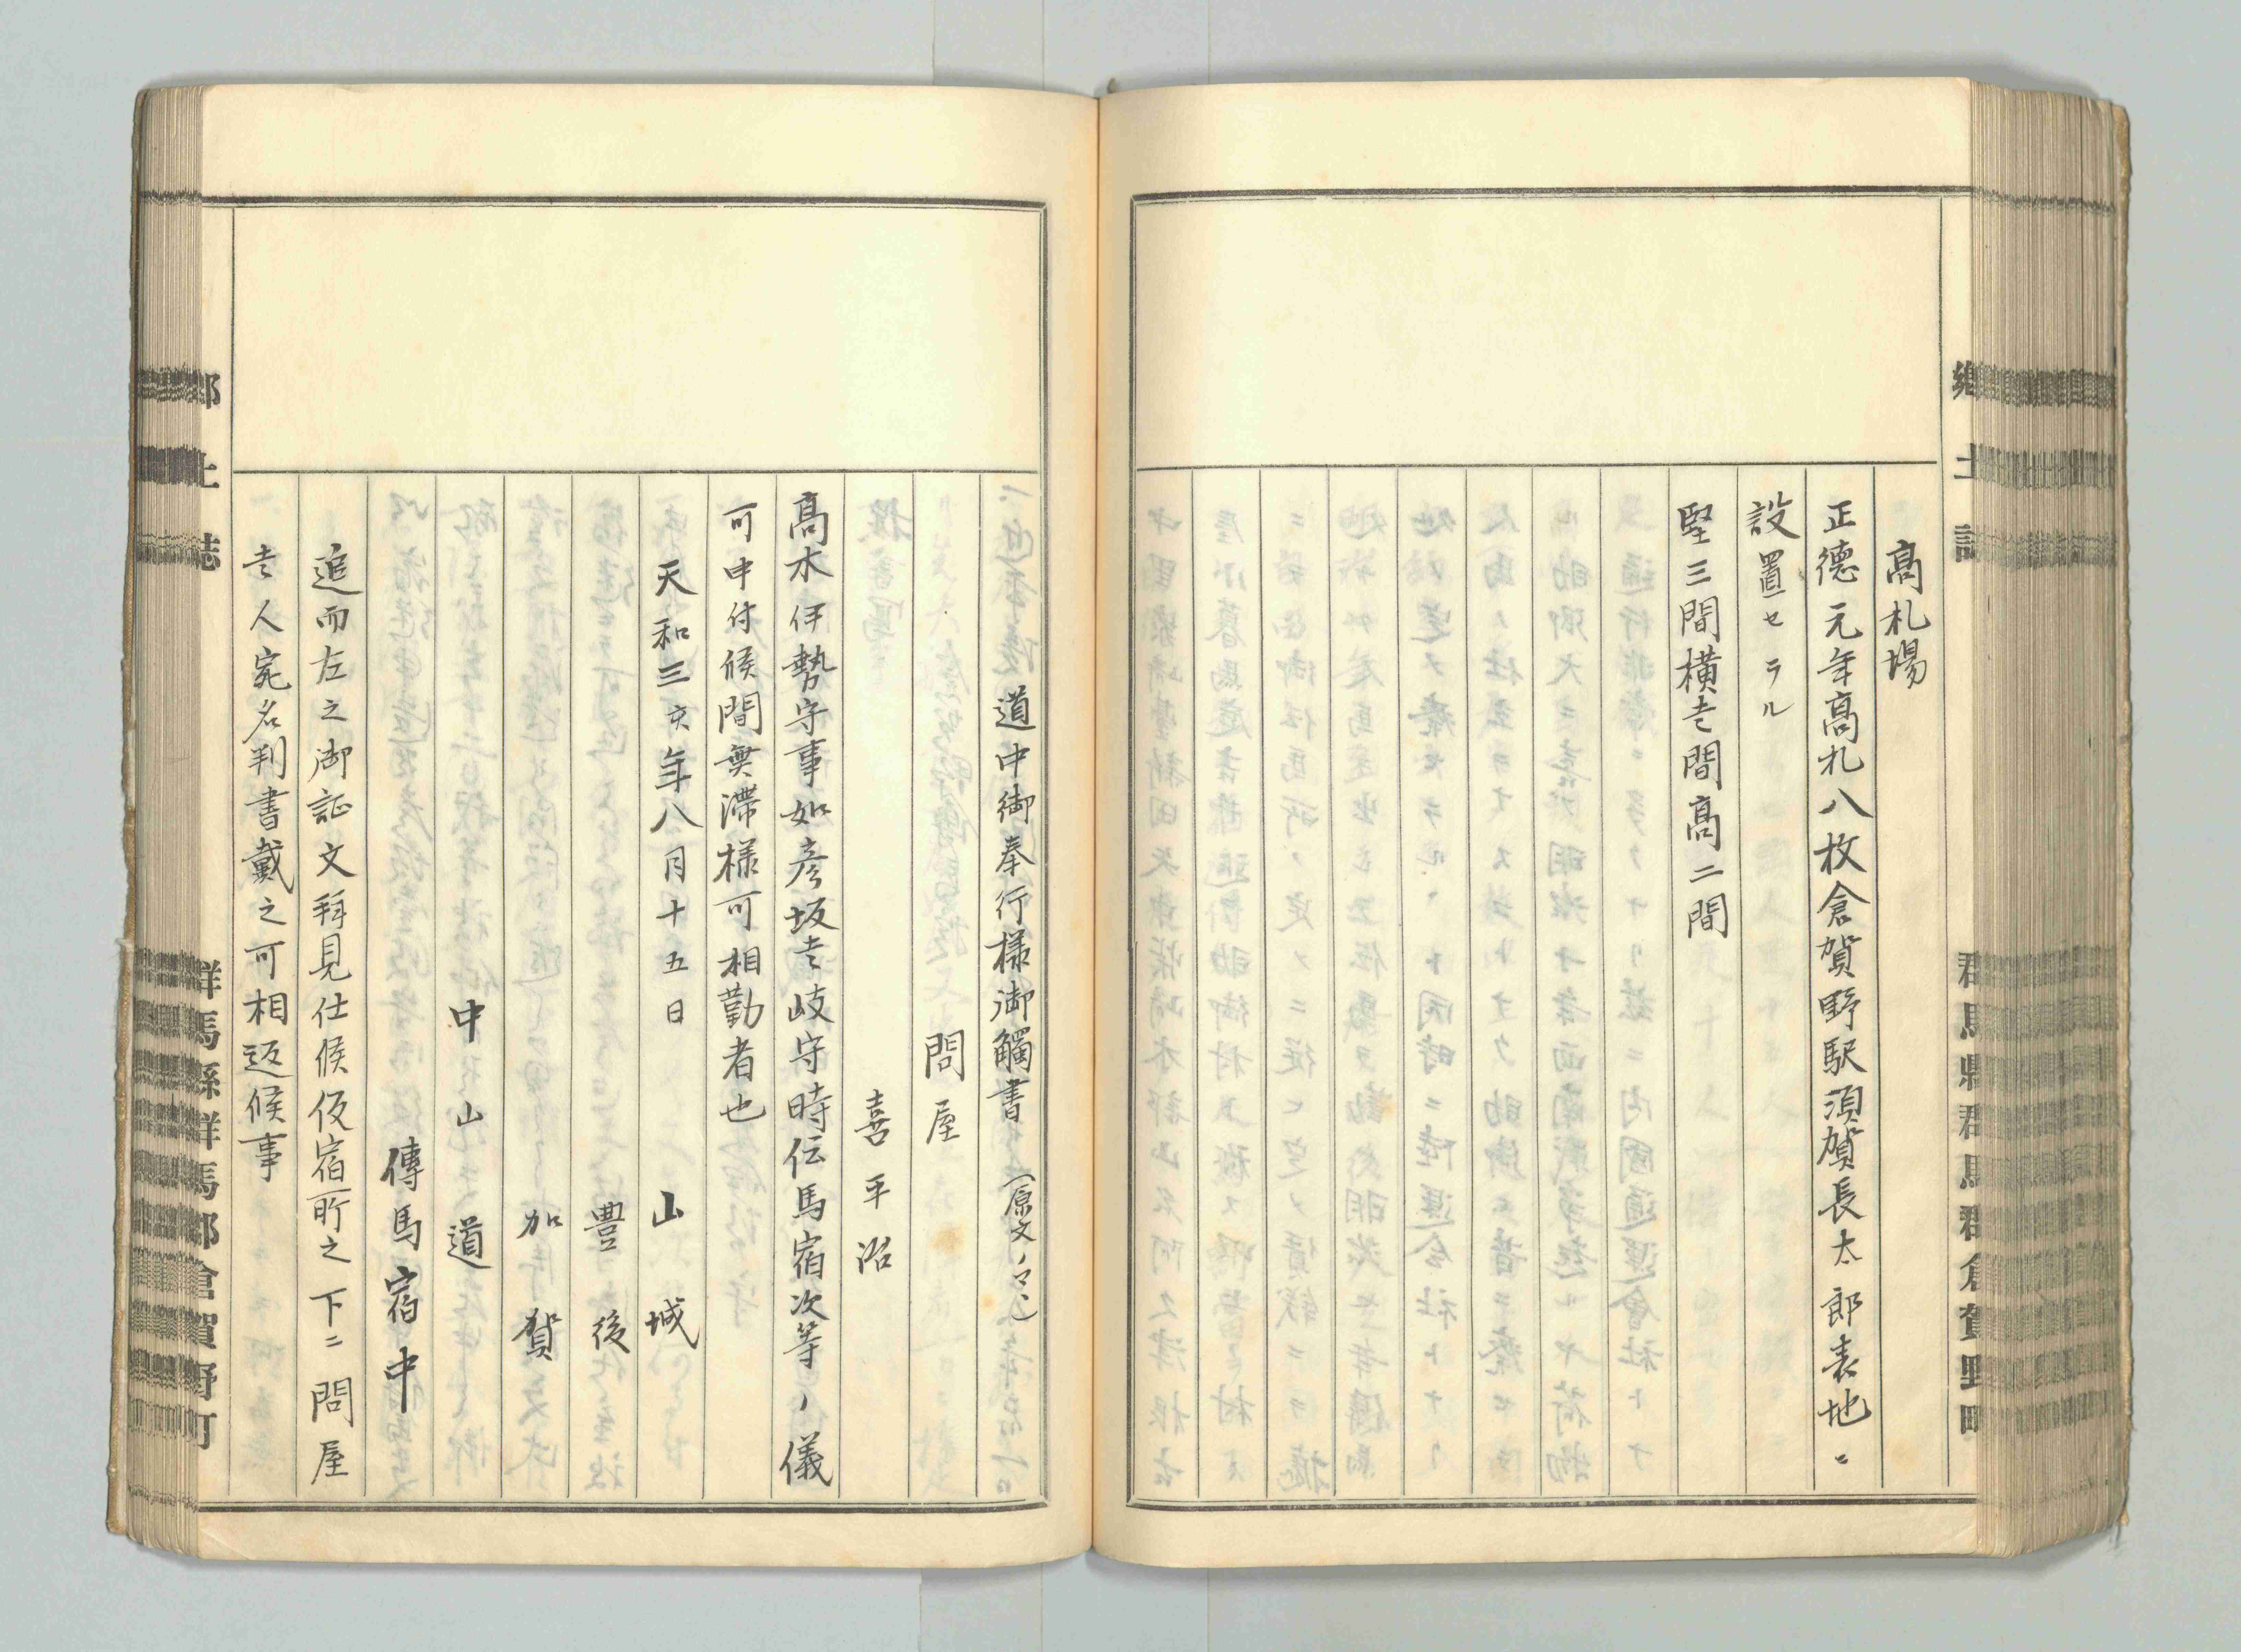 鄕土誌
群馬縣群馬郡倉賀野町
高札場
正德元年高札八枚倉賀野駅須賀長太郎表地ニ
設置セラル
堅三間横壱間高二間
道中御奉行様御觸書 (原文ノママ)
問屋
喜平治
高木伊勢守事如彦坂壱岐守時伝馬宿次等ノ儀
可申付候間無滞様可相勤者也
天和三亥年八月十五日 山城
豊後
加賀
中山道
傳馬宿中
追而左之御証文拜見仕候仮宿所之下ニ問屋
壱人宛名判書戴之可相返候事
郷土誌
群馬縣群馬郡倉賀野町